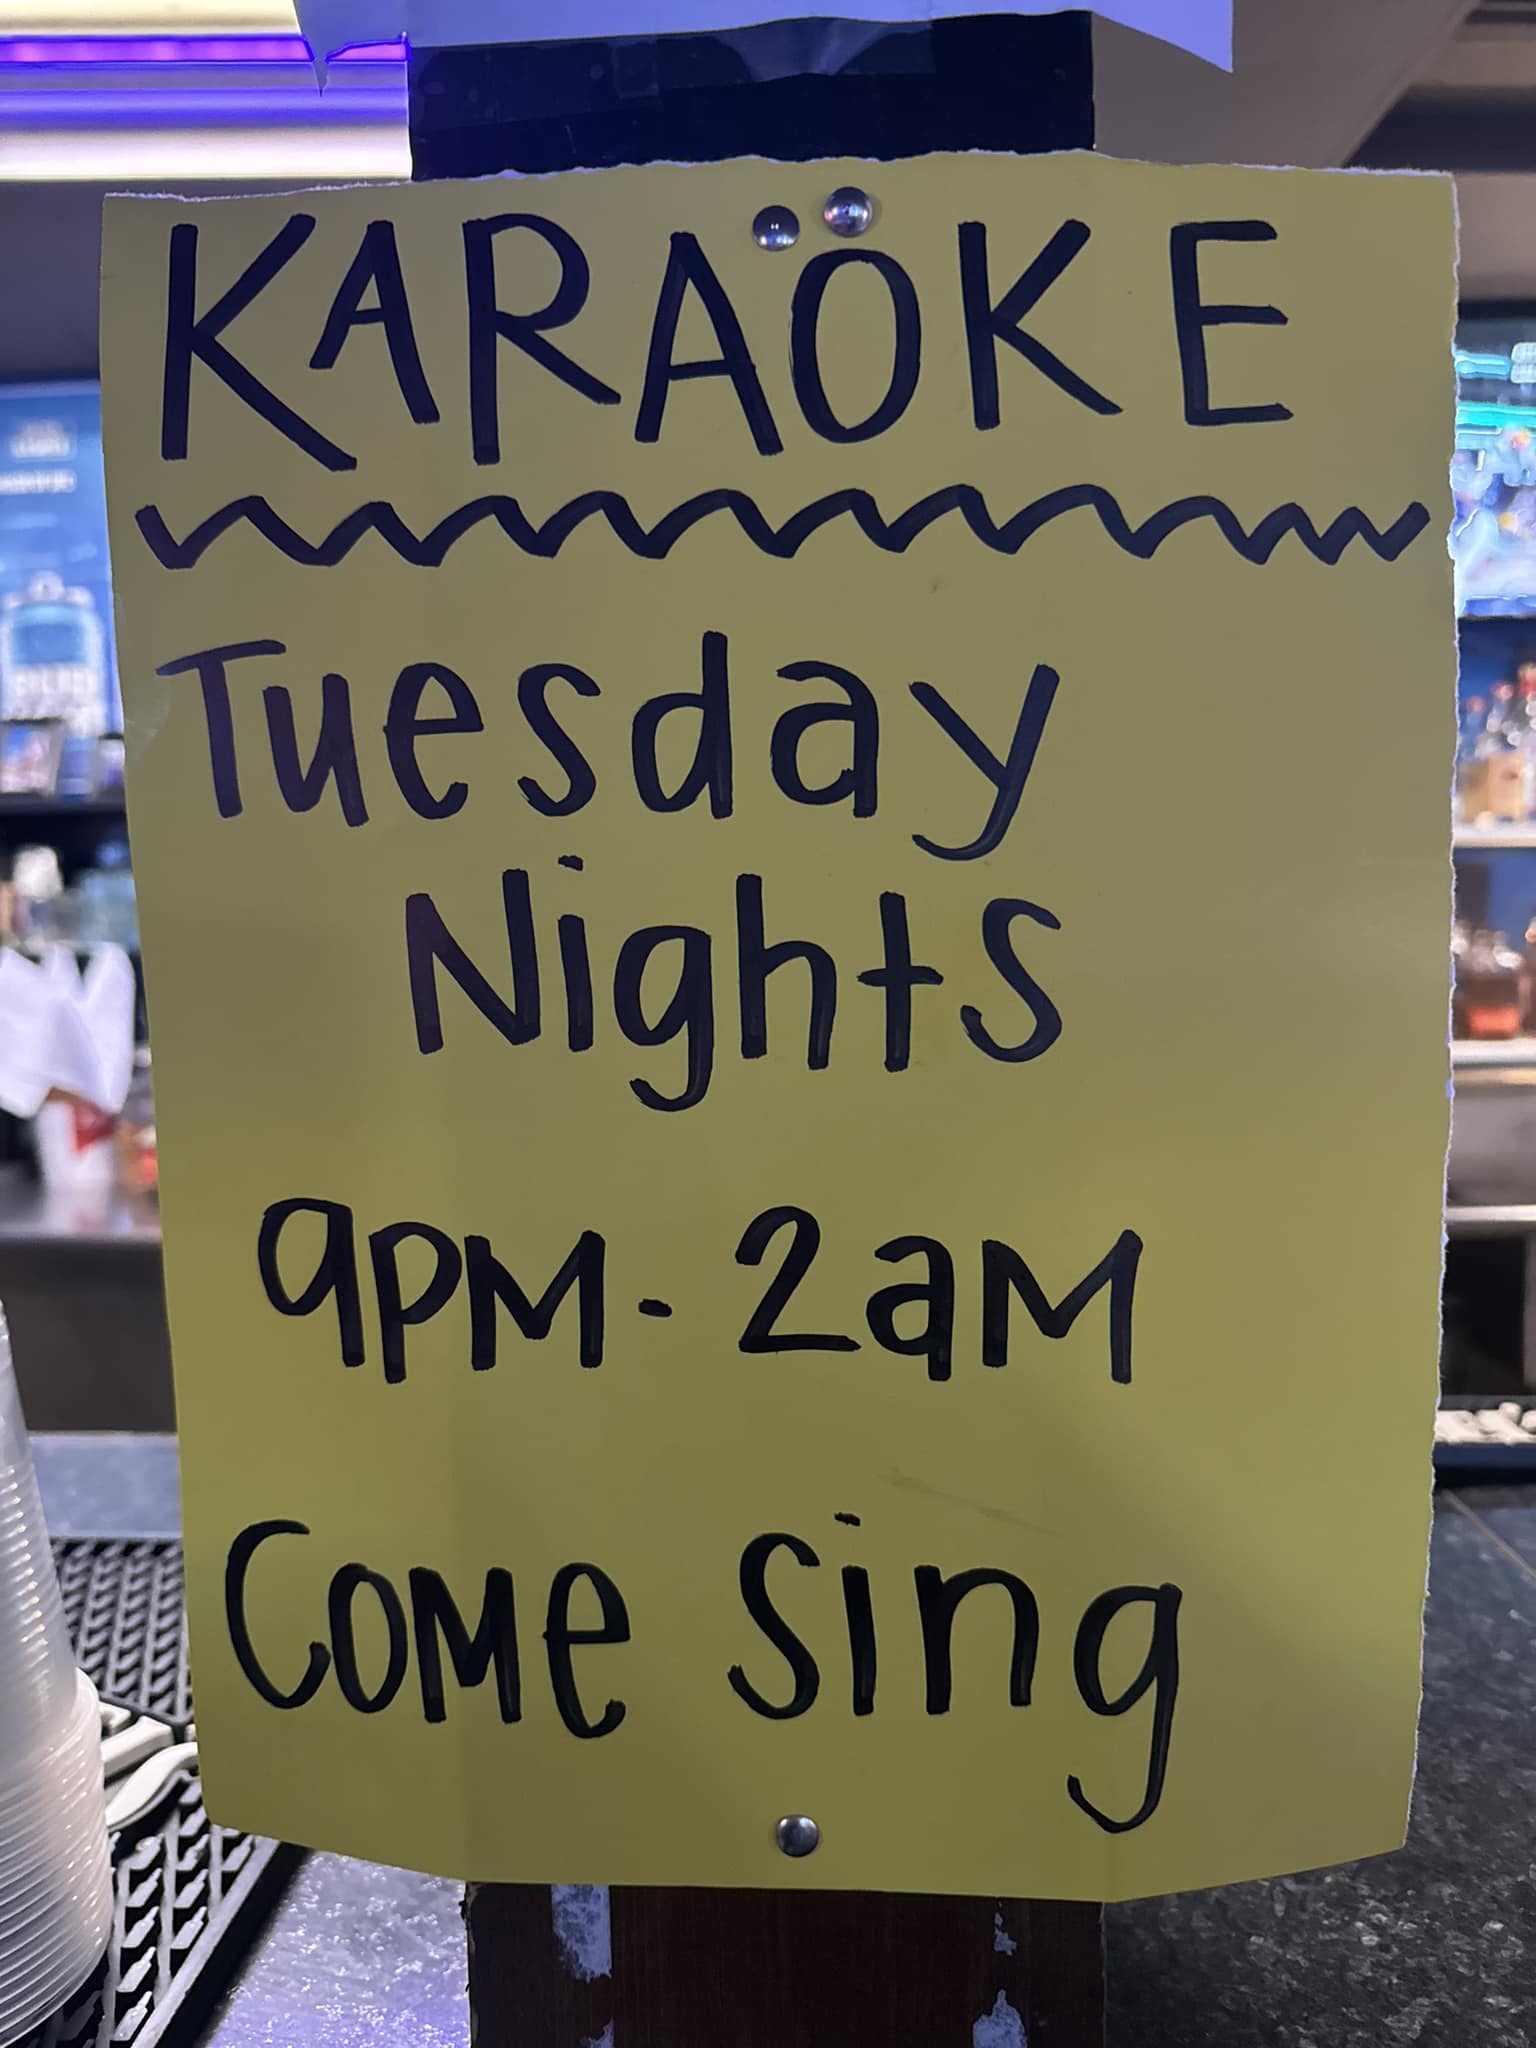 KARAOKE
Tuesday
Nights
9PM - 2aM
Come Sing